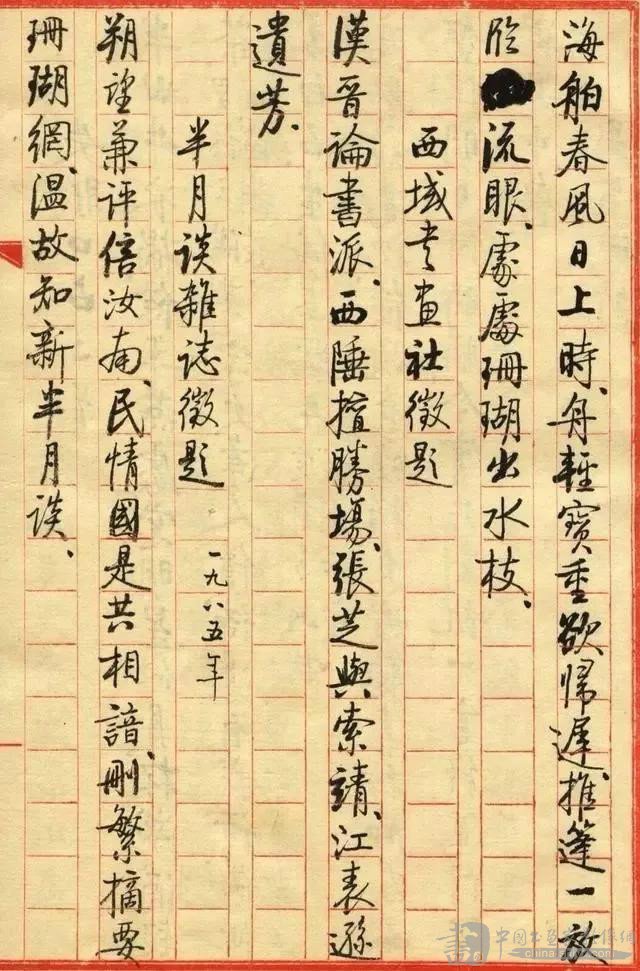 海舶春風日上時、舟輕寶重欲歸遲、推篷一放
臨流眼、處處珊瑚出水枝、
西域书畫社徵題
漢晉論書派、西陲擅勝場、張芝與索靖、江表遜
遺芳、
半月談雜誌徵題 一九八五年
朔望兼評倍汝南、民情國是共相諳、刪繁摘要
珊瑚網、温故知新半月談、